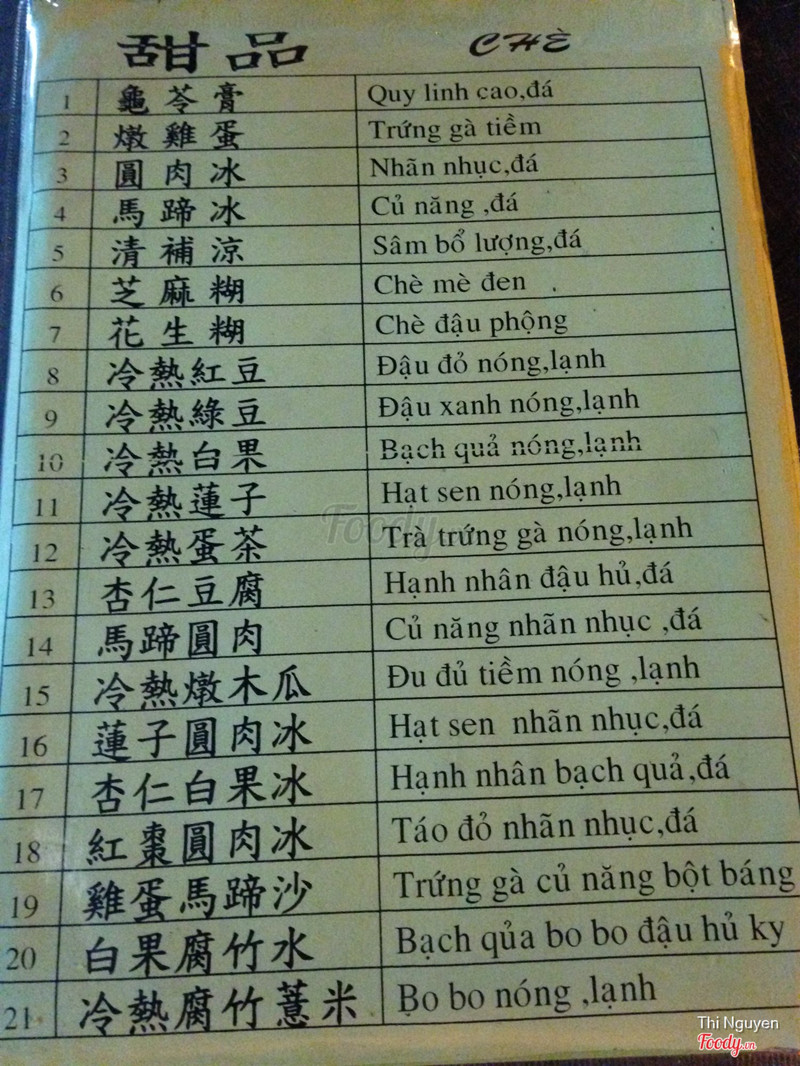 甜品 CHÈ
1 龜苓膏 Quy linh cao,đá
2 燉雞蛋 Trứng gà tiềm
3 圓肉冰 Nhãn nhục,đá
4 馬蹄冰 Củ năng ,đá
5 清補涼 Sâm bổ lượng,đá
6 芝麻糊 Chè mè đen
7 花生糊 Chè đậu phộng
8 冷熱紅豆 Đậu đỏ nóng,lạnh
9 冷熱綠豆 Đậu xanh nóng,lạnh
10 冷熱白果 Bạch quả nóng,lạnh
11 冷熱蓮子 Hạt sen nóng,lạnh
12 冷熱蛋茶 Trà trứng gà nóng,lạnh
13 杏仁豆腐 Hạnh nhân đậu hủ,đá
14 馬蹄圓肉 Củ năng nhãn nhục ,đá
15 冷熱燉木瓜 Đu đủ tiềm nóng ,lạnh
16 蓮子圓肉冰 Hạt sen nhãn nhục,đá
17 杏仁白果冰 Hạnh nhân bạch quả,đá
18 紅棗圓肉冰 Táo đỏ nhãn nhục,đá
19 雞蛋馬蹄沙 Trứng gà củ năng bột báng
20 白果腐竹水 Bạch qủa bo bo đậu hủ ky
21 冷熱腐竹薏米 Bo bo nóng ,lạnh
Foody
Thi Nguyen
Foody.vn